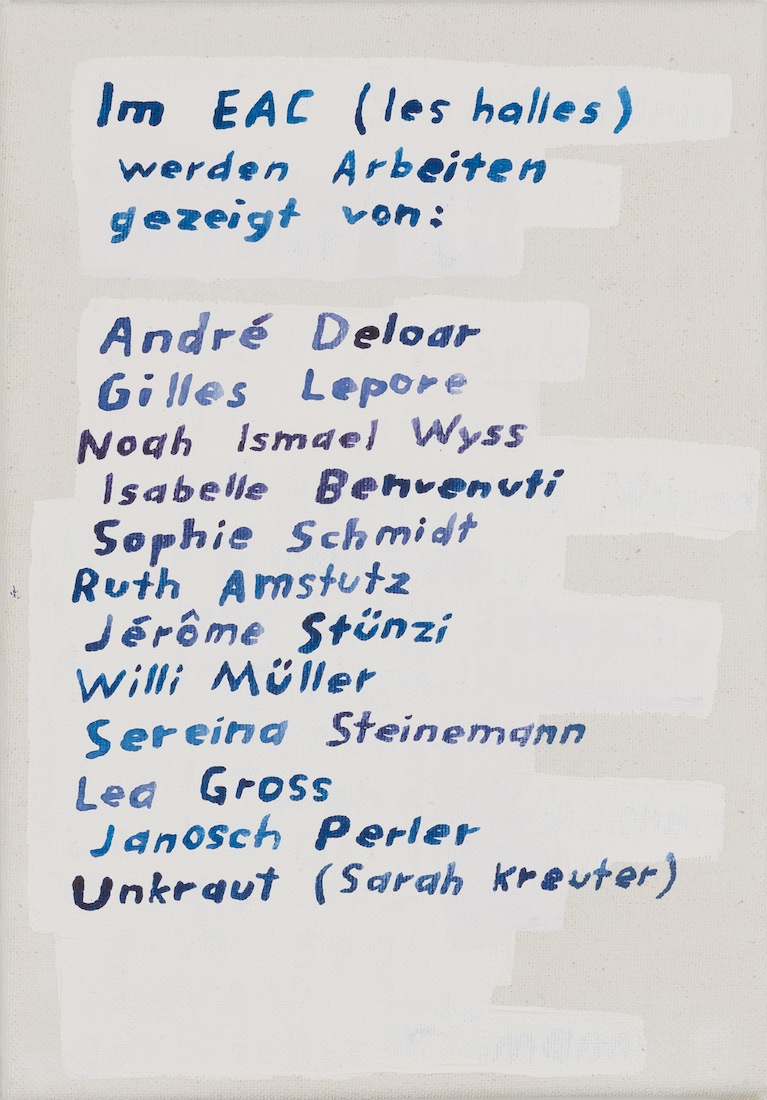 Im EAC (les halles)
werden Arbeiten
gezeigt von:
André Deloar
Gilles Lepore
Noah Ismael Wyss
Isabelle Benvenuti
Sophie Schmidt
Ruth Amstutz
Jérôme Stünzi
Willi Müller
Sereina Steinemann
Lea Gross
Janosch Perler
Unkraut (Sarah Kreuter)